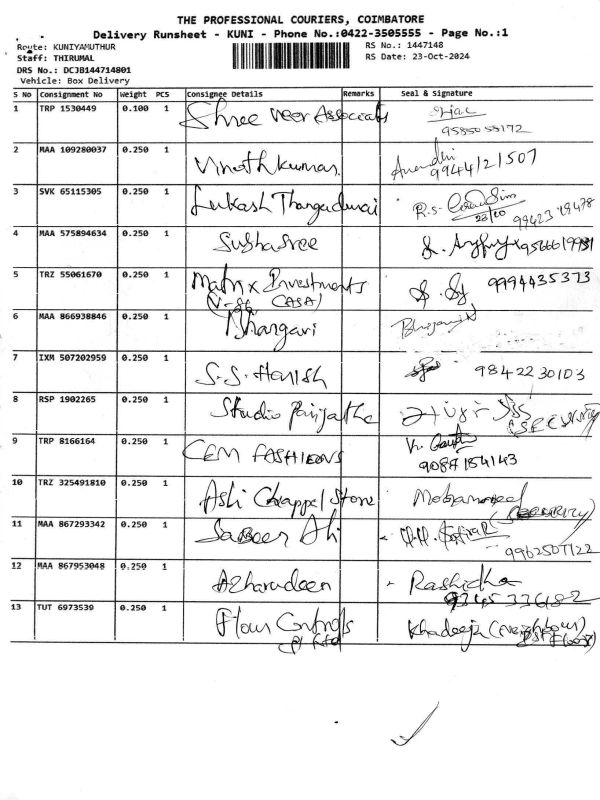 THE PROFESSIONAL COURIERS, COIMBATORE
Delivery Runsheet - KUNI - Phone No.:0422-3505555 - Page No.:1
Route: KUNIYAMUTHUR
RS No.: 1447148
Staff: THIRUMAL
RS Date: 23-Oct-2024
DRS No.: DCJB144714801
Vehicle: Box Delivery
S No Consignment No Weight PCS Consignee Details Remarks Seal & Signature
1 TRP 1530449 0.100 1 Shree Veer Associats
9585055172
2 MAA 109280037 0.250 1 Vinothkumar. Anandhi
9944121507
3 SVK 65115305 0.250 1 Lukash Thangadurai R.S.
23/10 99423 19478
4 MAA 575894634 0.250 1 Subhasree
5 TRZ 55061670 0.250 1 Matrix Investments 9994435373
(ASA)
6 MAA 866938846 0.250 1
7 IXM 507202959 0.250 1 S.S. Harish 9842230103
8 RSP 1902265 0.250 1 Studio Parijatha
9 TRP 8166164 0.250 1 CEM FASHIONS
9087154143
10 TRZ 325491810 0.250 1 Ashi Chappel Store Mohammed
(SECURITY)
11 MAA 867293342 0.250 1 Sabeer Ali
9962507122
12 MAA 867953048 0.250 1 Azharudeen Rashidha
9345336182
13 TUT 6973539 0.250 1 Flow Controls Khadeeja (Neighbour)
P Ltd